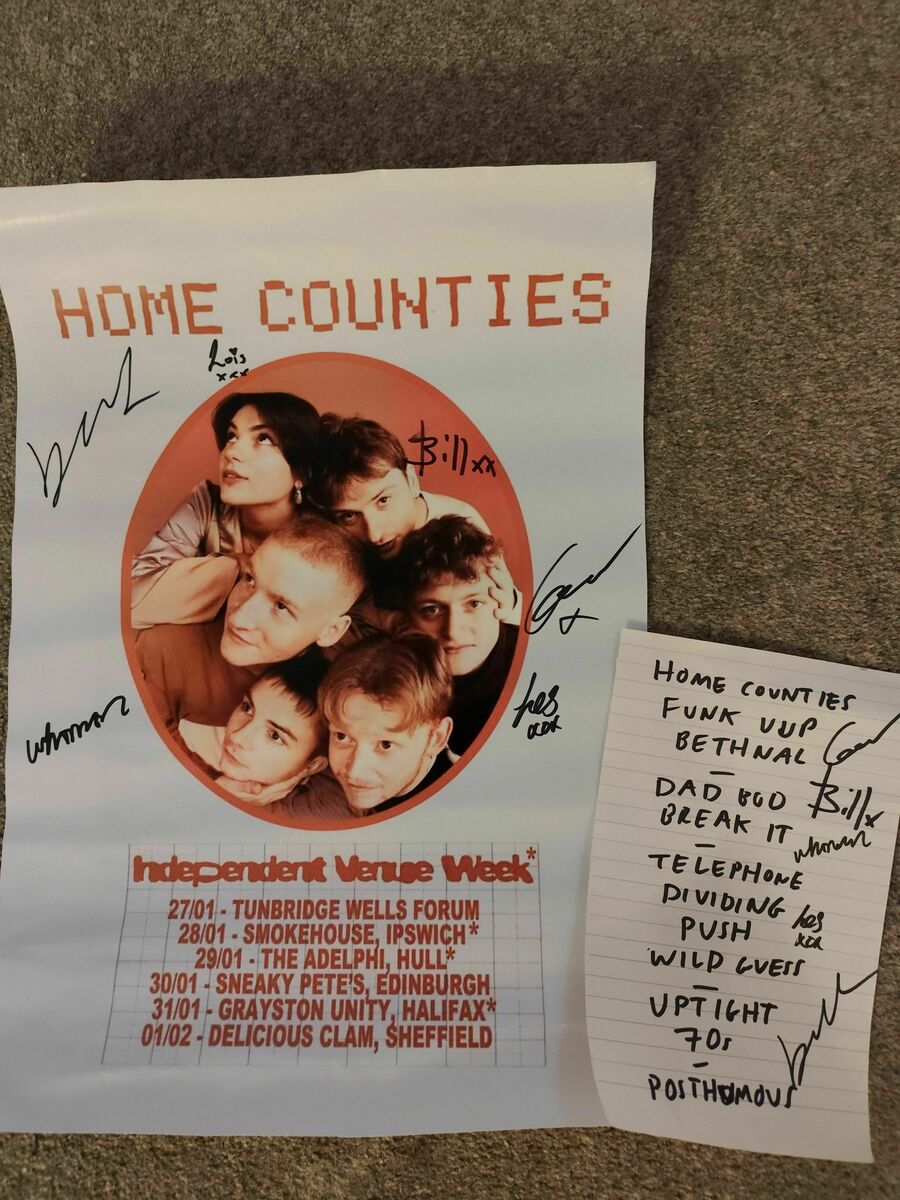 HOME COUNTIES
Lois
xxx
Bill xx
hes
xxx
Independent Venue Week*
27/01 - TUNBRIDGE WELLS FORUM
28/01 - SMOKEHOUSE, IPSWICH*
29/01 - THE ADELPHI, HULL*
30/01 - SNEAKY PETE'S, EDINBURGH
31/01 - GRAYSTON UNITY, HALIFAX*
01/02 - DELICIOUS CLAM, SHEFFIELD
HOME COUNTIES
FUNK UUP
BETHNAL
–
DAD BOD
Bill x
BREAK IT
–
TELEPHONE
DIVIDING
hes
xxx
PUSH
WILD GUESS
–
UPTIGHT
70s
–
POSTHUMOUS